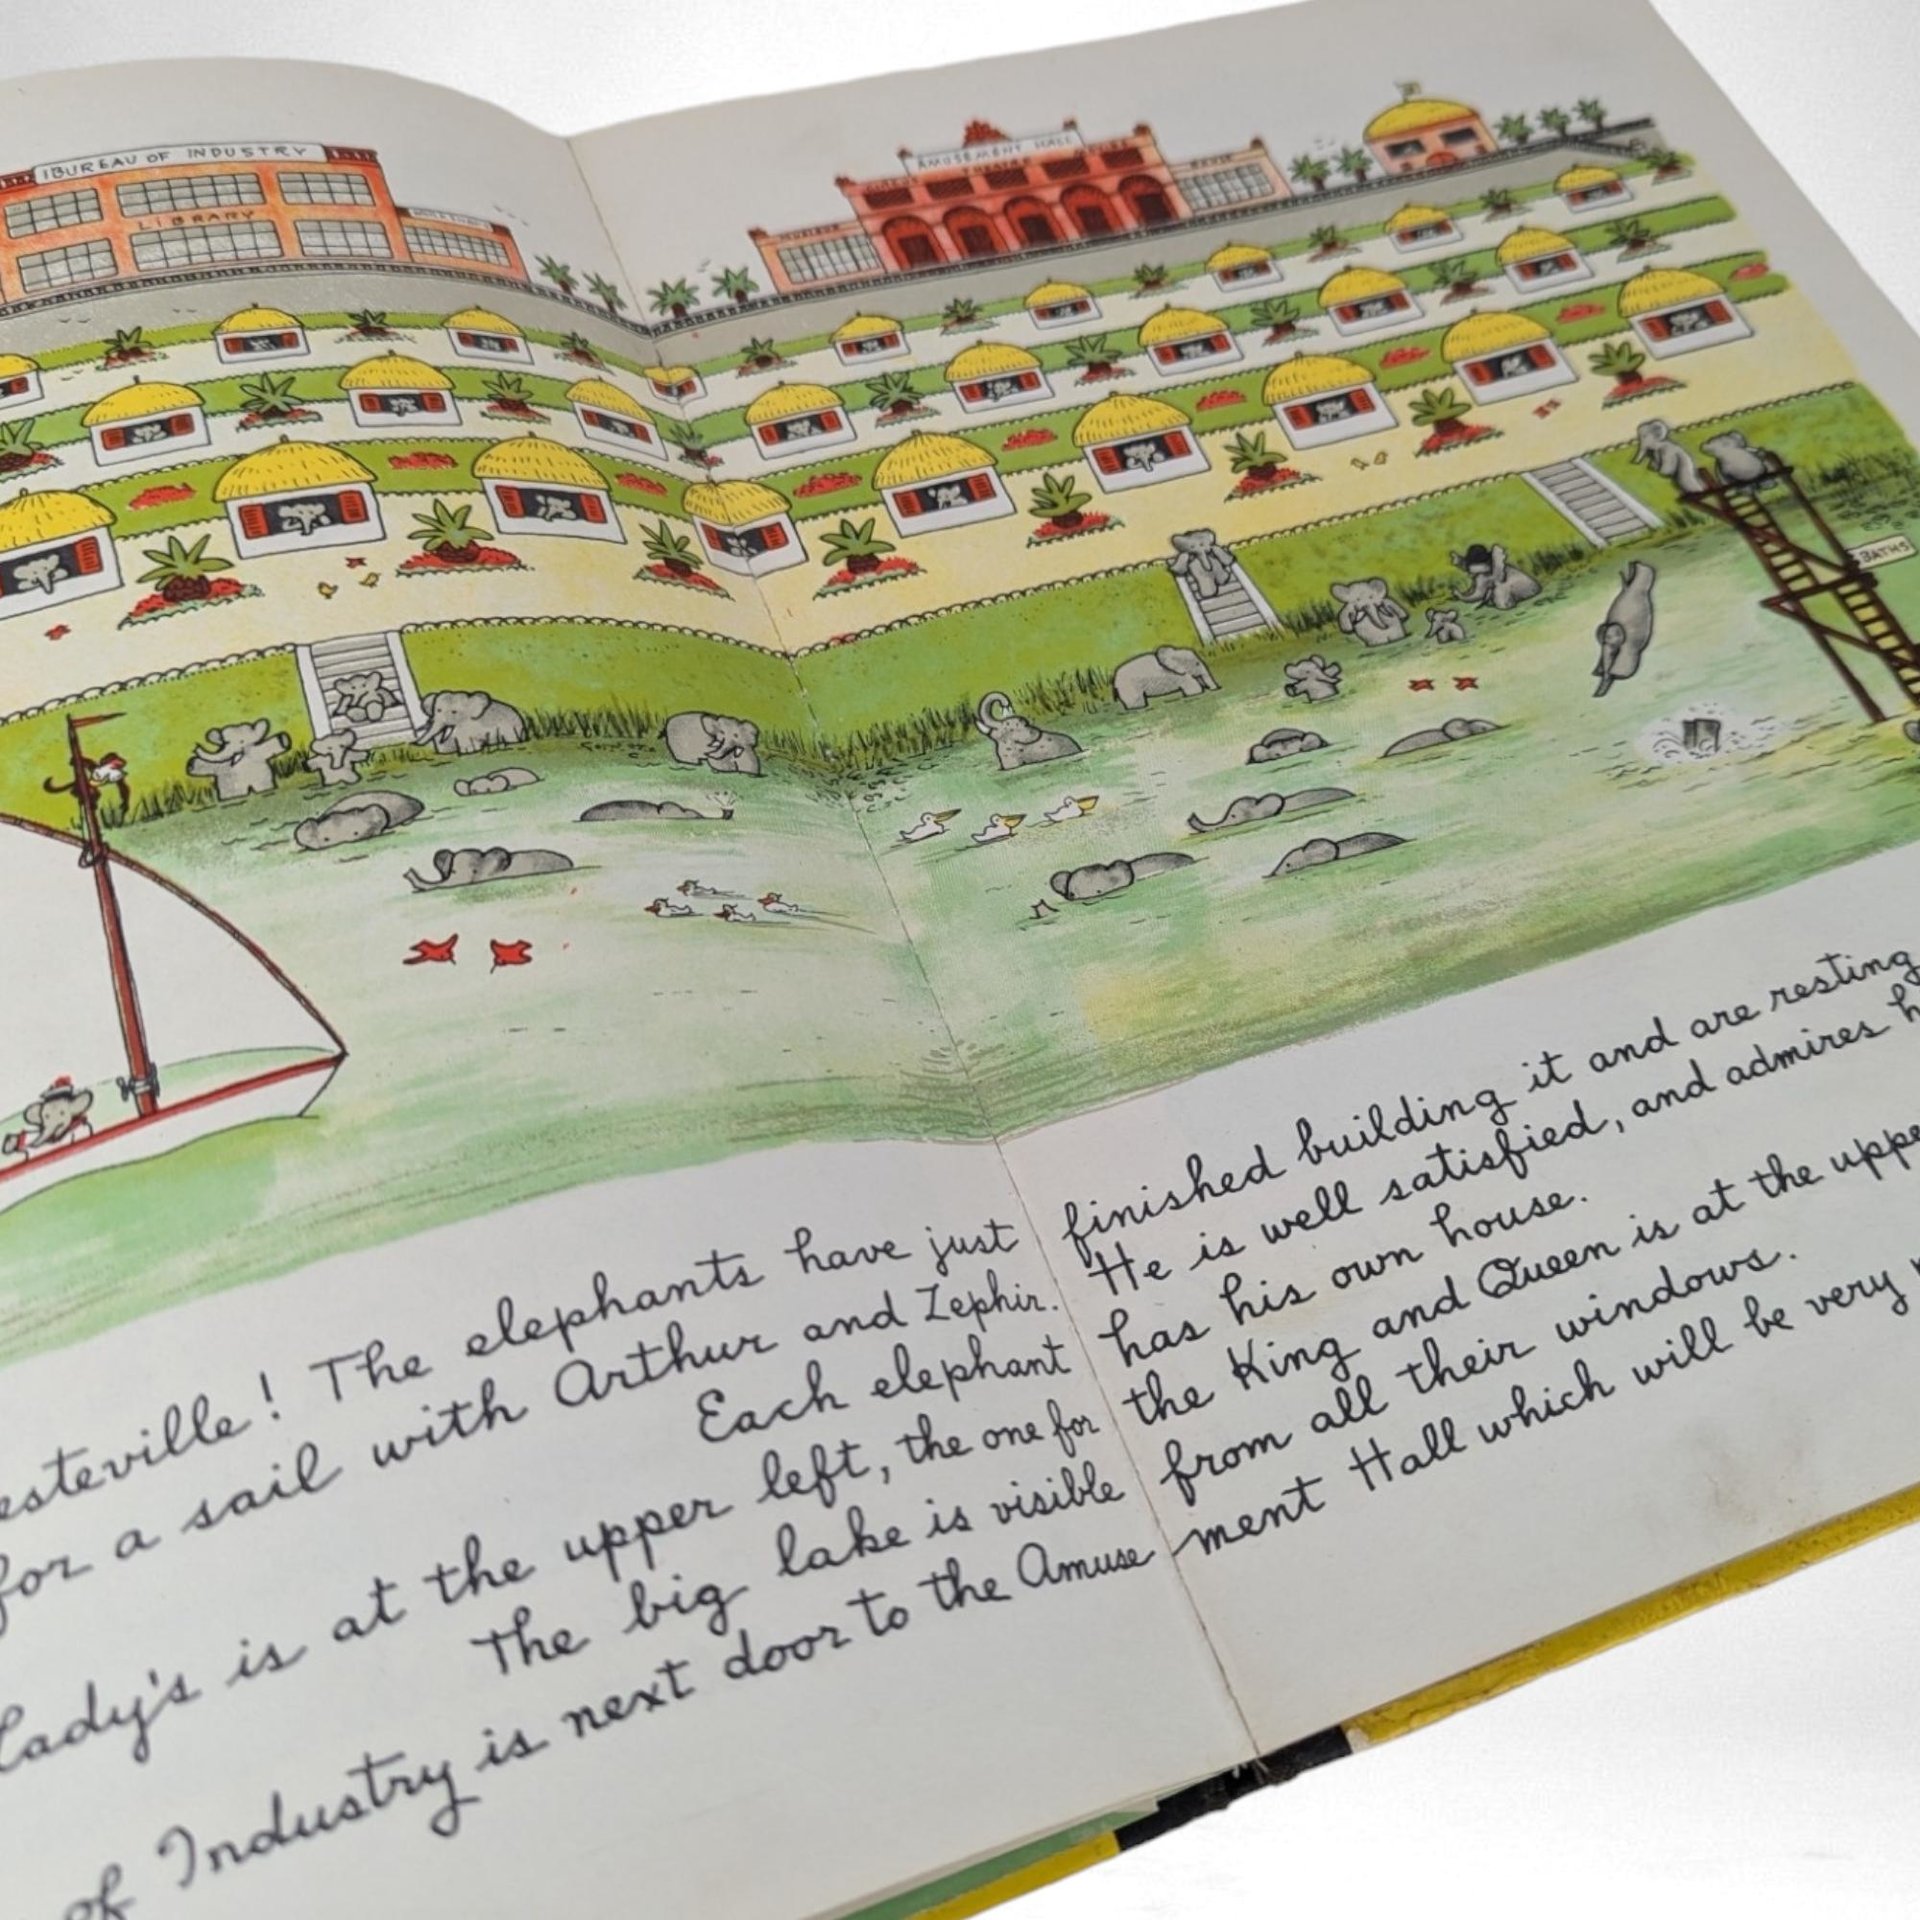 BUREAU OF INDUSTRY
LIBRARY
AMUSEMENT HALL
THEATRE
MUSIQUE
BATHS
esteville! The elephants have just
for a sail with Arthur and Zephir.
Each elephant
Lady's is at the upper left, the one for
The big lake is visible
of Industry is next door to the Amuse
finished building it and are resting
He is well satisfied, and admires h
has his own house.
the King and Queen is at the uppe
from all their windows.
ment Hall which will be very